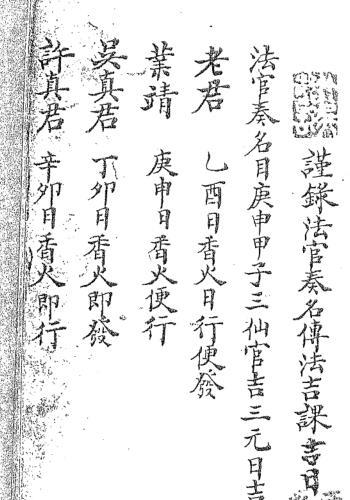 謹録法官奏名傳法吉課吉日
法官奏名目庚申甲子三仙官吉三元日吉
老君 乚酉日香火日行便發
葉靖 庚申日香火便行
吳真君 丁卯日香火即發
許真君 辛卯日香火即行